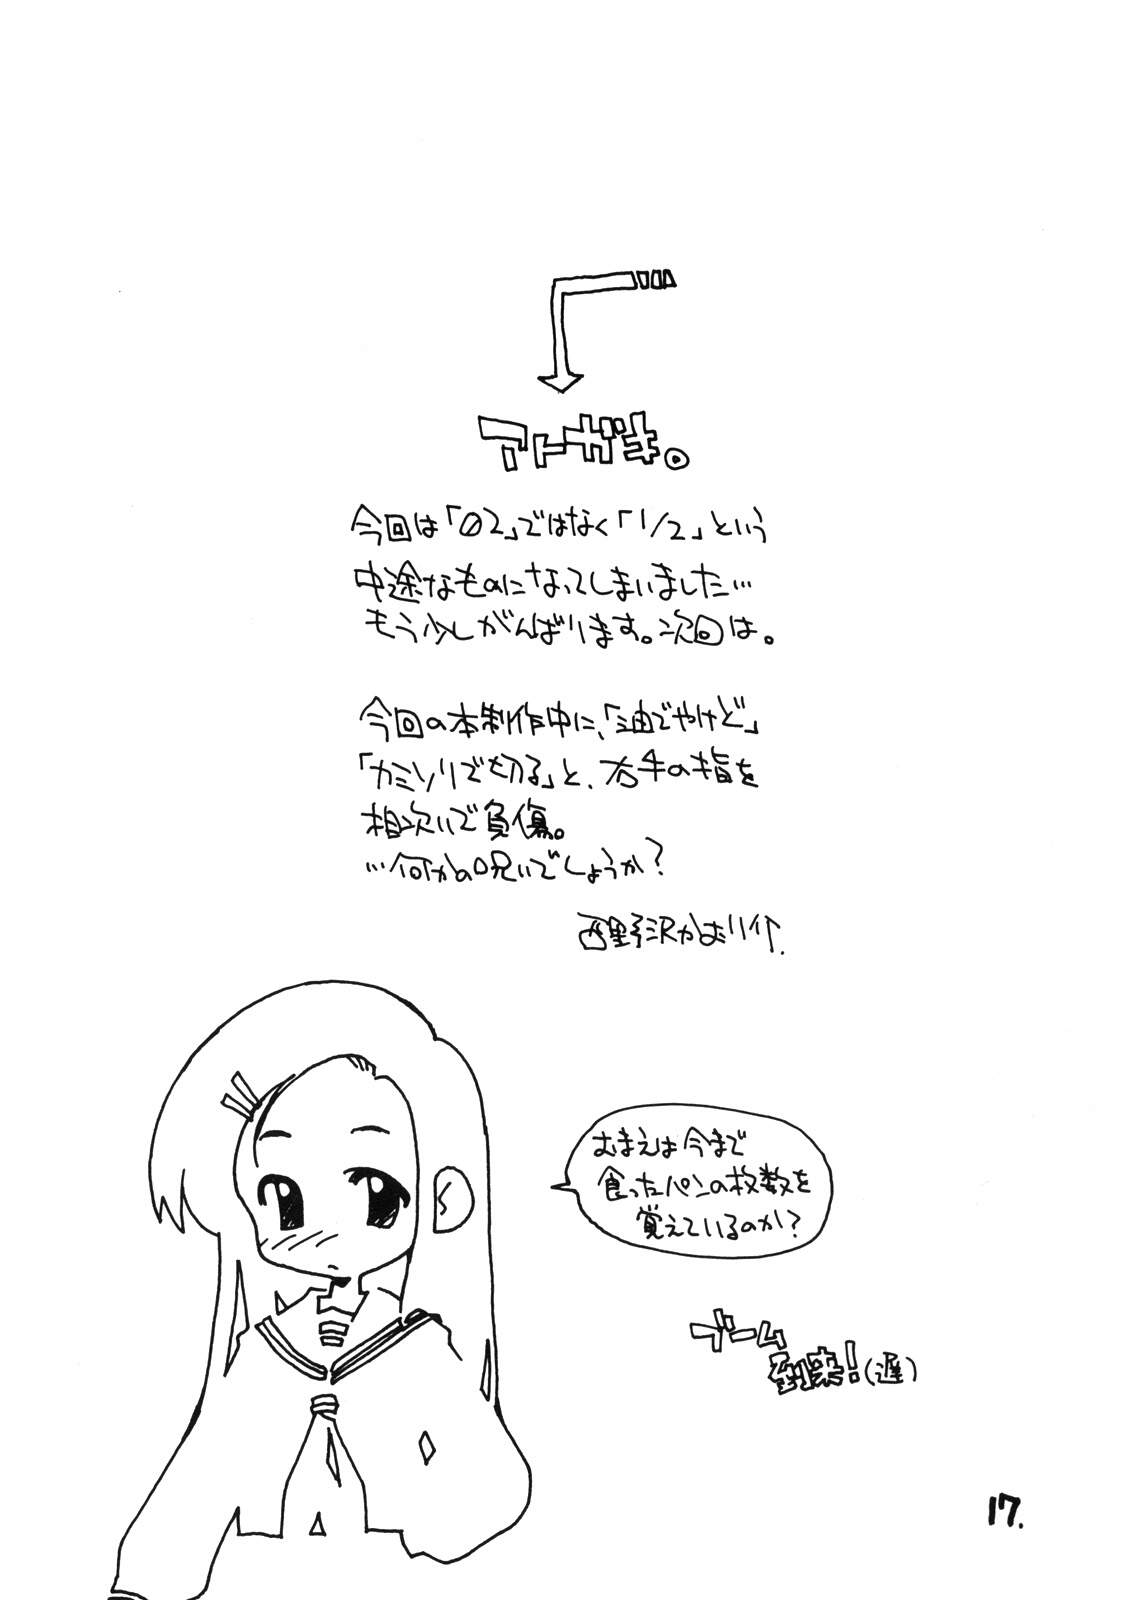 アトガキ。
今回は「02」ではなく「1/2」という
中途なものになってしまいました…
もう少しがんばります。次回は。
今回の本制作中に、「油でやけど」
「カミソリで切る」と、右手の指を
相次いで負傷。
…何かの呪いでしょうか?
西野沢かおり
おまえは今まで
食ったパンの枚数を
覚えているのか?
ブーム
到来!(遅)
17.